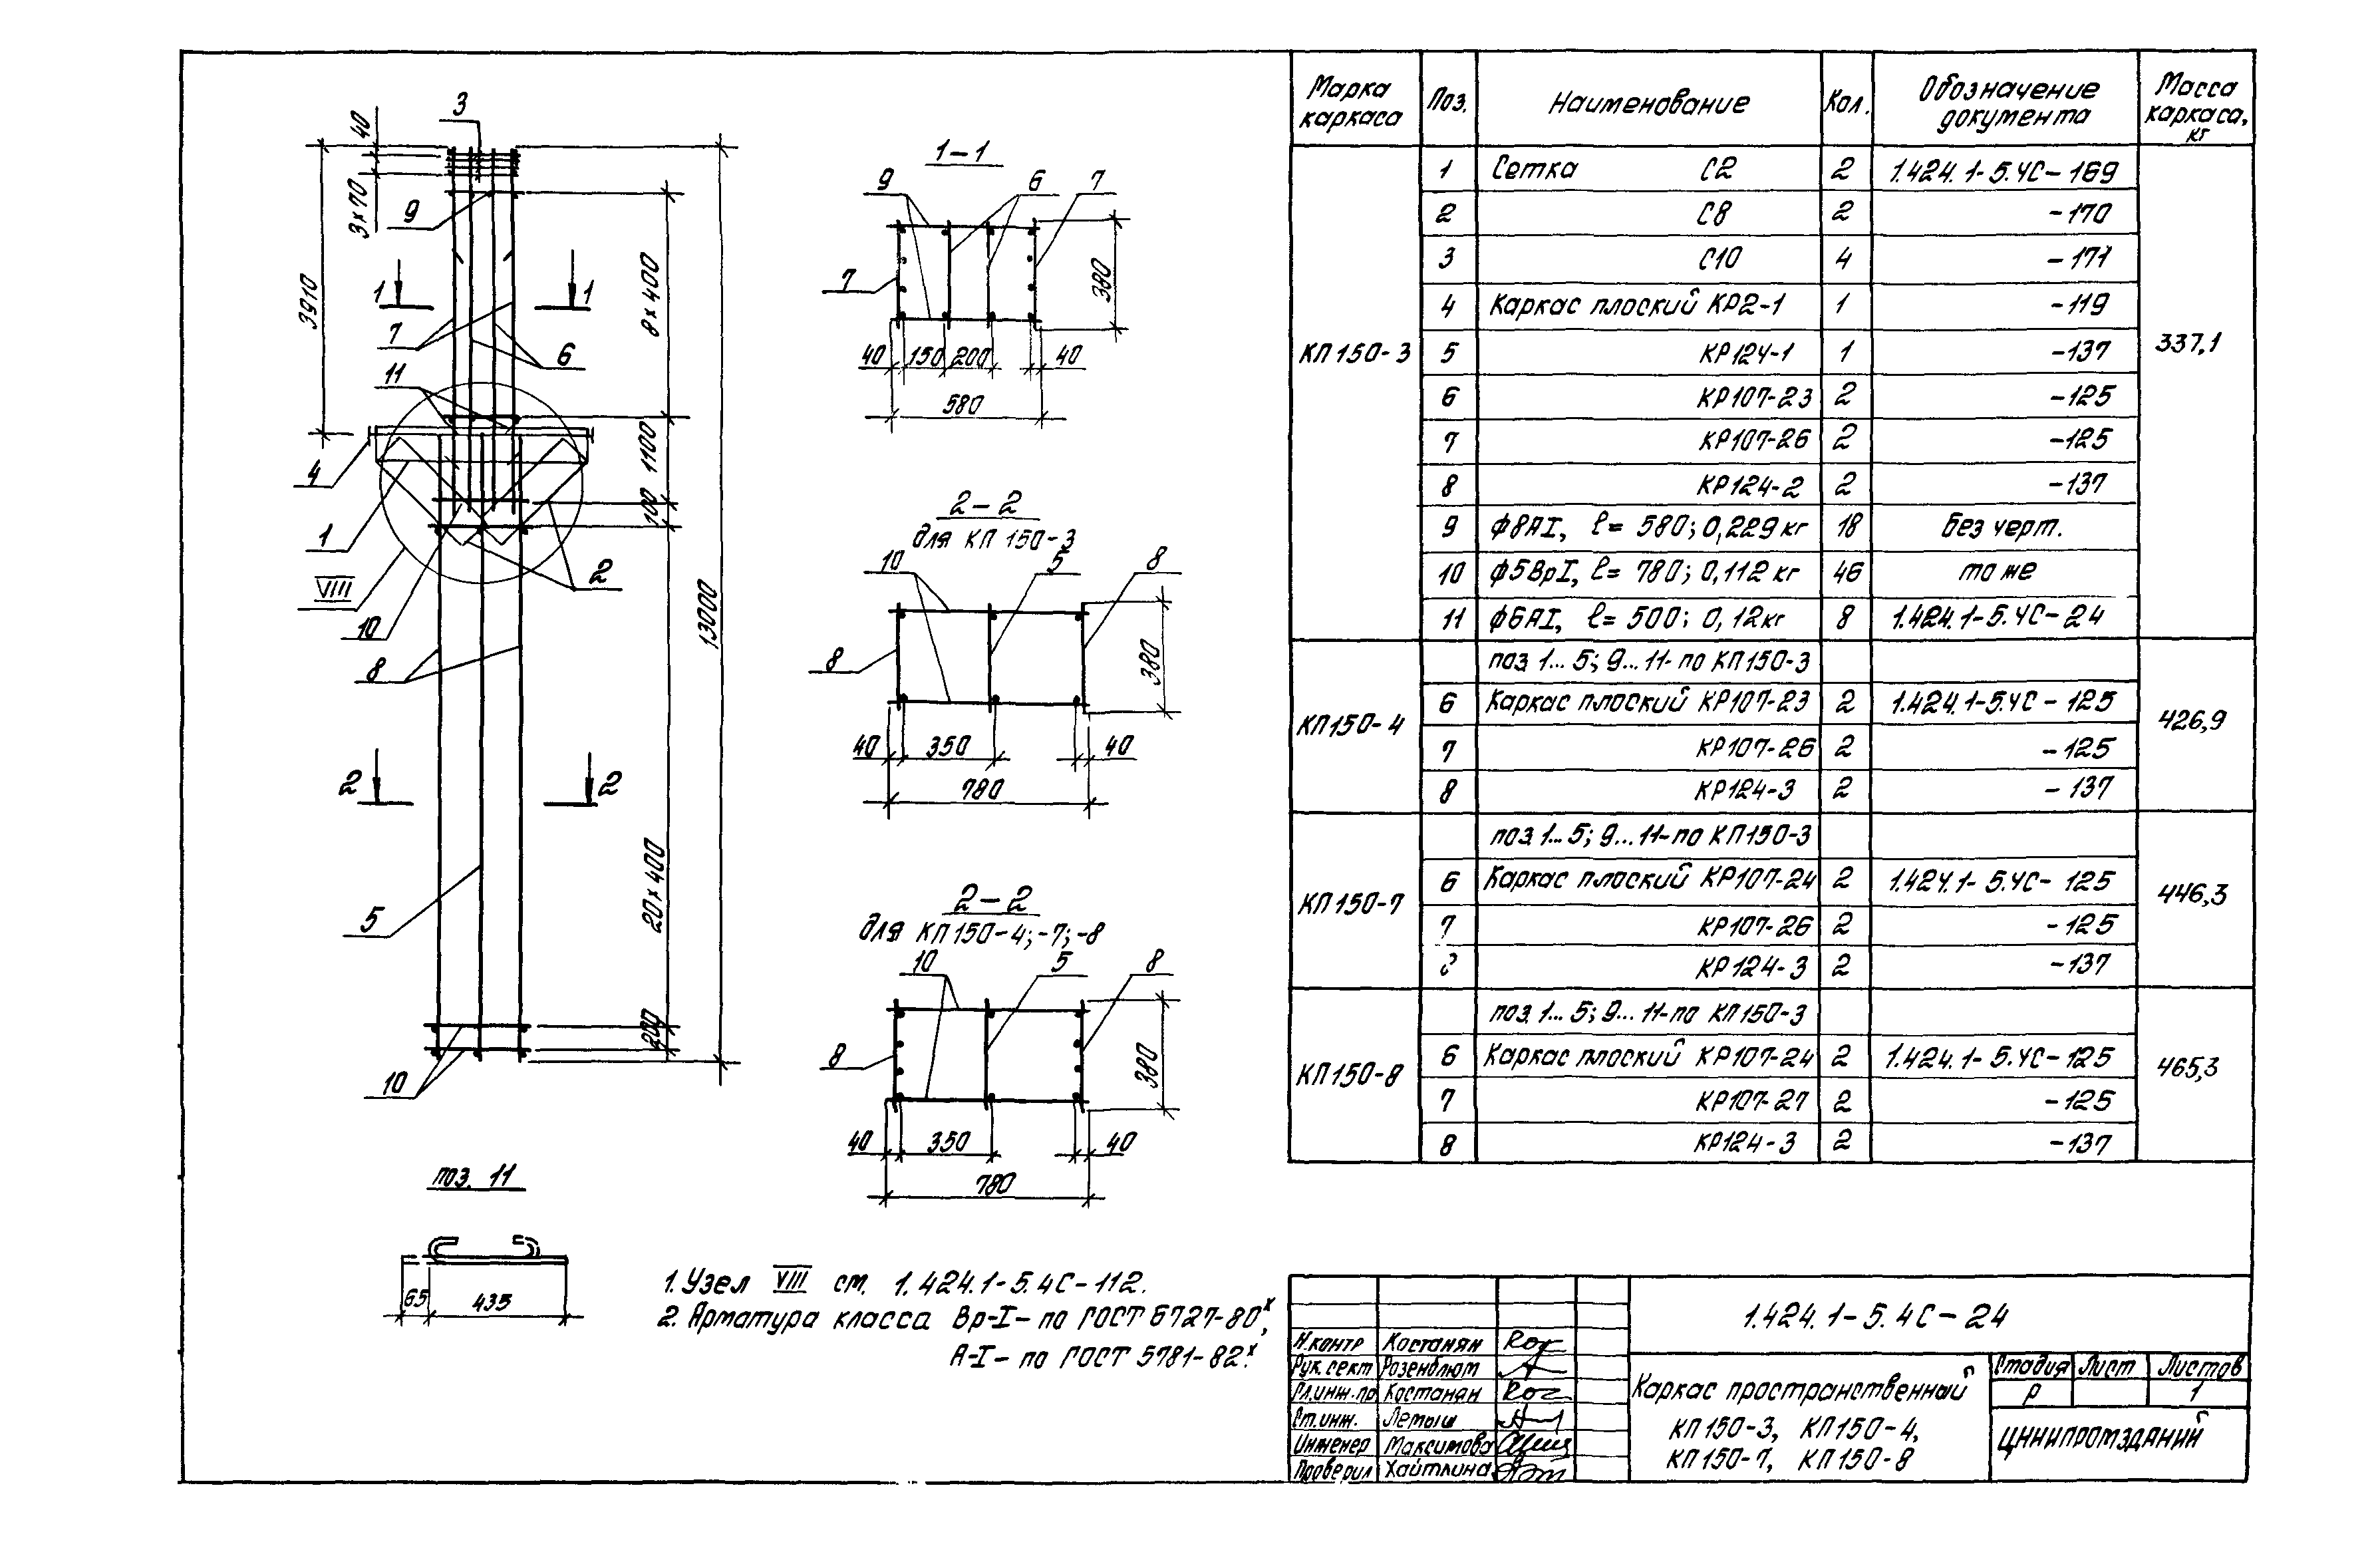 3
40
3×70
3910
9
1
1
7
6
11
8×400
1100
100
4
1
VIII
2
10
8
13000
2
2
20×400
5
200
10
поз. 11
65
435
1-1
9
6
7
7
380
40
150
200
40
580
2-2
для КП 150-3
10
5
8
8
380
40
350
40
780
2-2
для КП150-4;-7;-8
10
5
8
8
380
40
350
40
780
1. Узел VIII см. 1.424.1-5.4С-112.
2. Арматура класса Вр-I- по ГОСТ 6727-80х,
А-I- по ГОСТ 5781-82х.
Марка каркаса Поз. Наименование Кол. Обозначение документа Масса каркаса, кг
КП150-3 337,1
1 Сетка С2 2 1.424.1-5.4С-169
2 С8 2 -170
3 С10 4 -171
4 Каркас плоский КР2-1 1 -119
5 КР124-1 1 -137
6 КР107-23 2 -125
7 КР107-26 2 -125
8 КР124-2 2 -137
9 ф8АI, ℓ= 580; 0,229кг 18 без черт.
10 ф5ВрI, ℓ= 780; 0,112кг 46 то же
11 ф6АI, ℓ= 500; 0,12кг 8 1.424.1-5.4С-24
КП150-4 426,9
поз. 1...5; 9...11-по КП150-3
6 Каркас плоский КР107-23 2 1.424.1-5.4С-125
7 КР107-26 2 -125
8 КР124-3 2 -137
КП150-7 446,3
поз. 1...5; 9...11-по КП150-3
6 Каркас плоский КР107-24 2 1.424.1-5.4С-125
7 КР107-26 2 -125
8 КР124-3 2 -137
КП150-8 465,3
поз. 1...5; 9...11-по КП150-3
6 Каркас плоский КР107-24 2 1.424.1-5.4С-125
7 КР107-27 2 -125
8 КР124-3 2 -137
1.424.1-5.4С-24
Н.контр Костанян
Рук.сект Розенблюм
Гл.инж.пр Костанян
Ст.инж. Лемыш
Инженер Максимова
Проверил Хайтлина
Каркас пространственный
КП150-3, КП150-4,
КП150-7, КП150-8
Стадия Лист Листов
Р 1
ЦНИИПРОМЗДАНИЙ